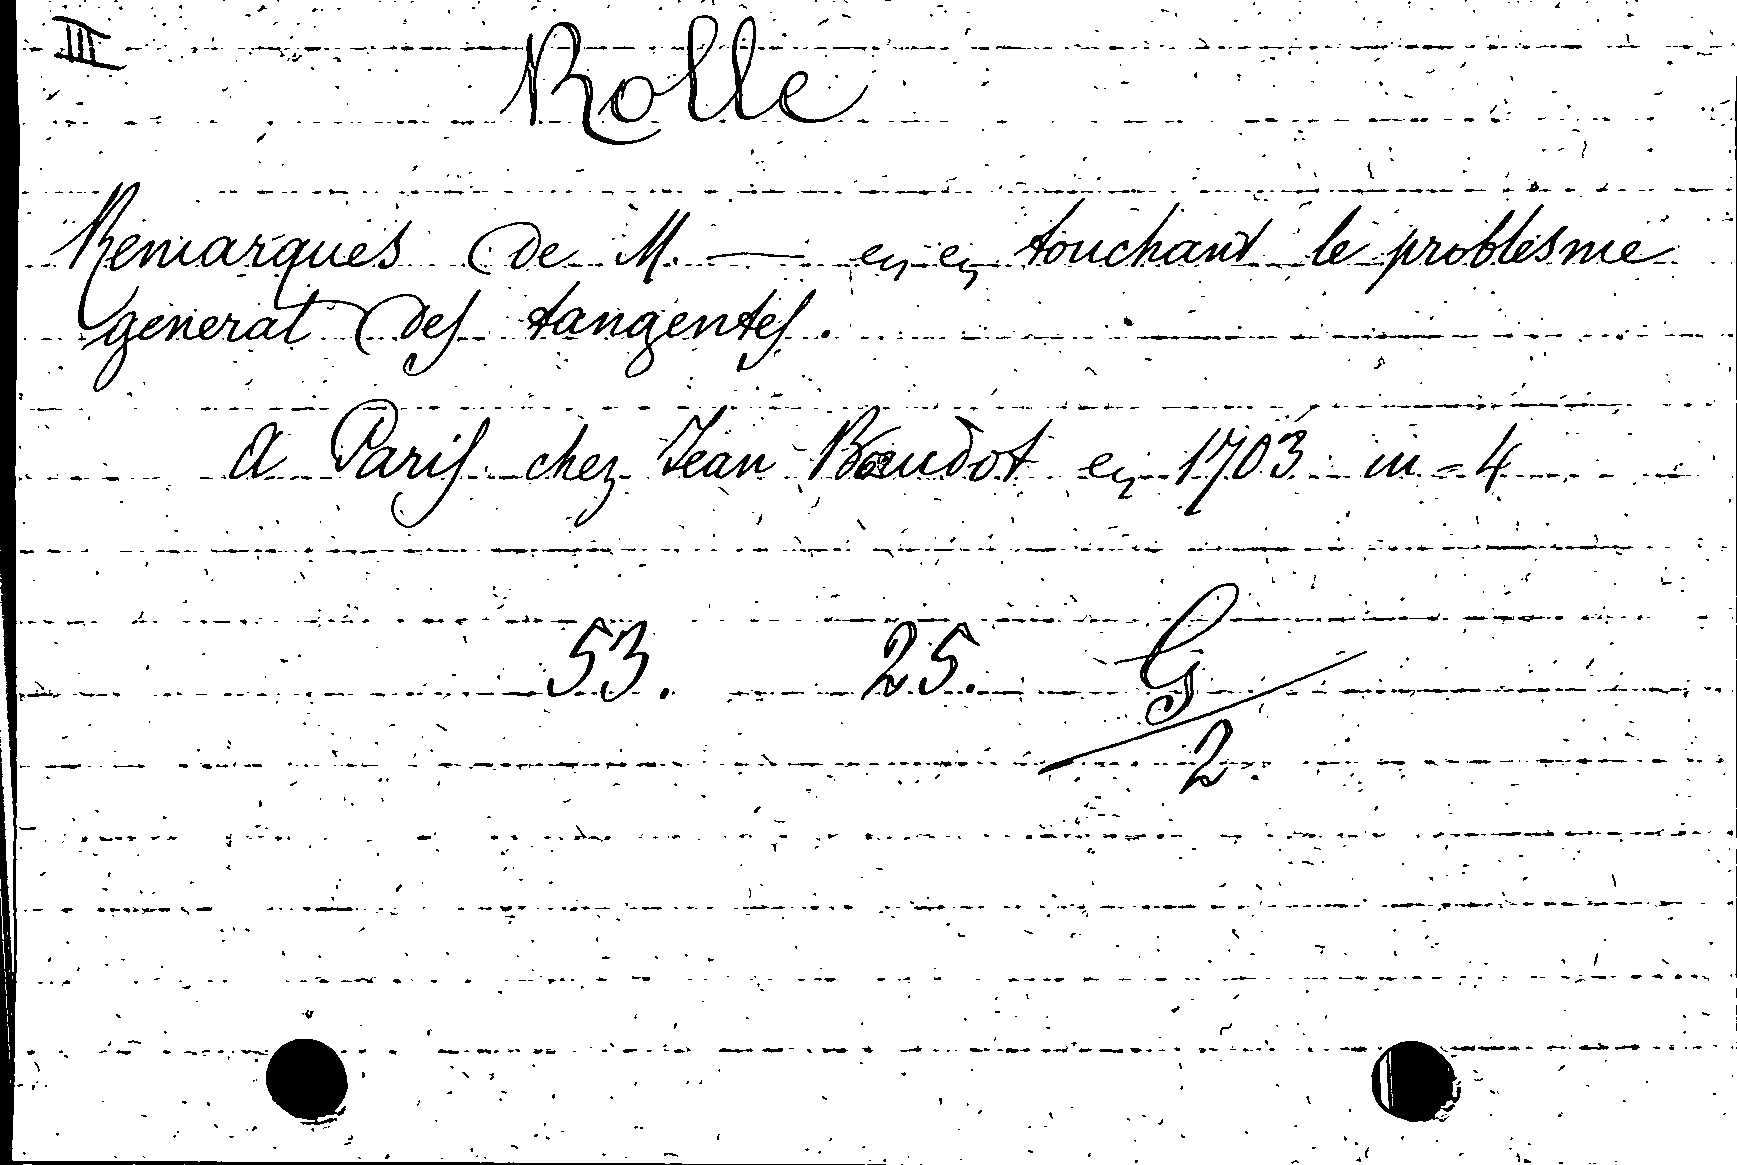 III
Rolle
Remarques de M. — en en touchant le problesme
general des tangentes.
A Paris chez Jean Boudot en 1703 in=4
53. 25. G/2